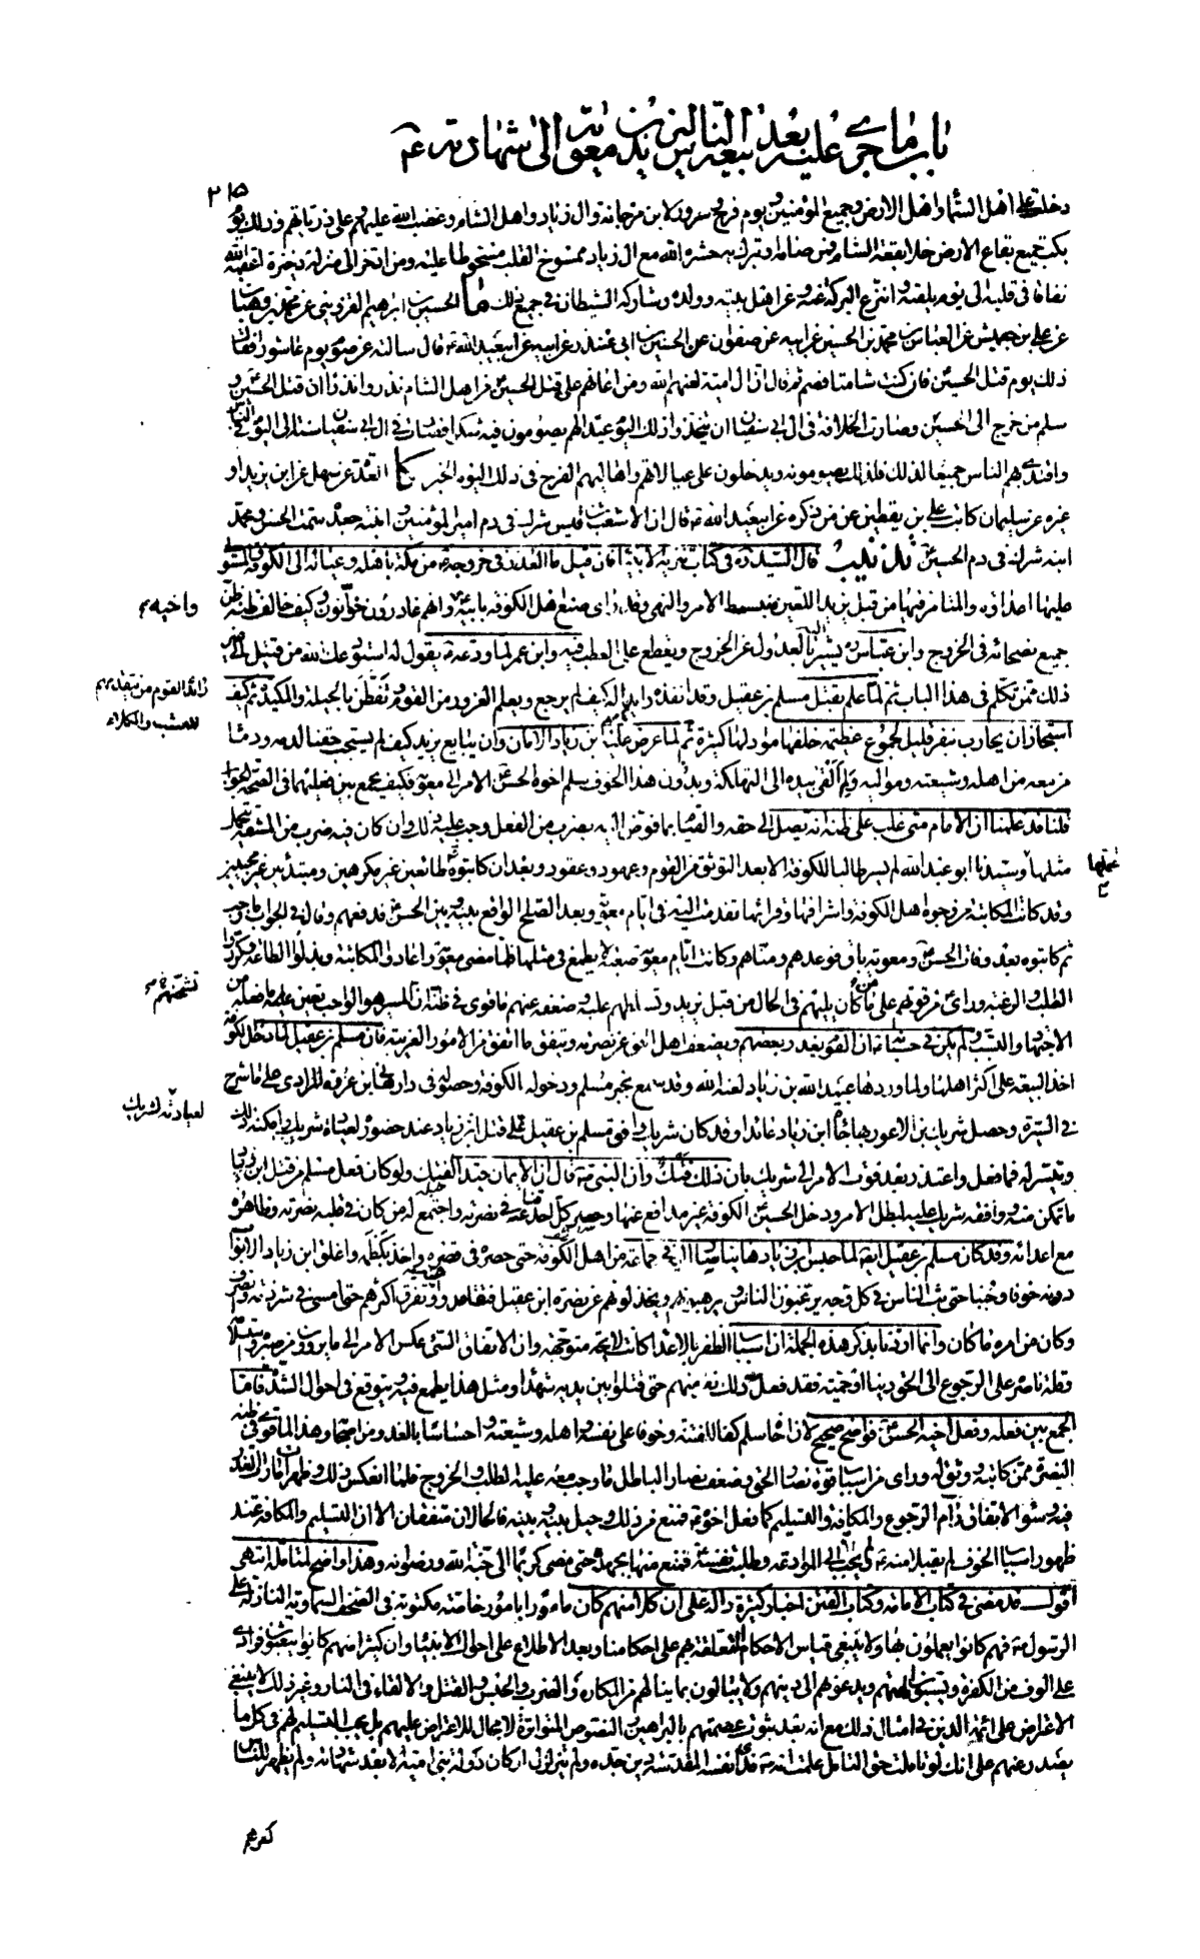 باب ما جرى عليه بعد بيعة الناس ليزيد بن معوية الى شهادته ع
٢١٥
دخلت على اهل السماء واهل الارض وجميع المؤمنين ويوم فرح وسرور لابن مرجانة وال زياد واهل الشام وغضب الله عليهم وعلى ذرياتهم وذلك يوم
بكت جميع بقاع الارض خلا بقعة الشام فمن صامه او تبرك به حشره الله مع ال زياد ممسوخ القلب مسخوطا عليه ومن ادخر الى منزله ذخيرة اعقبه الله
نفاقا في قلبه الى يوم يلقيه وانتزع البركة عنه وعن اهل بيته وولده وشاركه الشيطان في جميع ذلك ما الحسين بن ابرهيم القزويني عن محمد بن وهبان
عن علي بن حبيش عن العباس بن محمد بن الحسين عن ابيه عن صفوان عن الحسين بن ابي غندر عن ابيه عن ابيعبد الله ع قال سالته عن صوم يوم عاشورا فقال
ذلك يوم قتل الحسين فان كنت شامتا فصم ثم قال ان ال امية لعنهم الله ومن اعانهم على قتل الحسين من اهل الشام نذروا نذرا ان قتل الحسين و
سلم من خرج الى الحسين وصارت الخلافة في ال ابي سفيان ان يتخذوا ذلك اليوم عيدا لهم يصومون فيه شكرا فصارت في ال ابي سفيان سنة الى اليوم في الناس
واقتدى بهم الناس جميعا لذلك فلذلك يصومونه ويدخلون على عيالاتهم واهاليهم الفرح في ذلك اليوم الخبر كا العدة عن سهل عن ابن يزيد او
غيره عن سليمان كاتب علي بن يقطين عمن ذكره عن ابيعبد الله ع قال ان الاشعث بن قيس شرك في دم امير المؤمنين وابنته جعدة سمت الحسن ومحمد
ابنه شرك في دم الحسين تذنيب قال السيد ره في كتاب تنزيه الانبياء فان قيل ما العذر في خروجه ع من مكة باهله وعياله الى الكوفة والمستولي
عليها اعداؤه والمتامر فيها من قبل يزيد اللعين منبسط الامر والنهي وقد راى صنع اهل الكوفة بابيه واخيه وانهم غادرون خوانون وكيف خالف ظنه ظن
جميع نصحائه في الخروج وابن عباس ره يشير بالعدول عن الخروج ويقطع على العطب فيه وابن عمر لما ودعه ع يقول له استودعك الله من قتيل الى غير
ذلك ممن تكلم في هذا الباب ثم لما علم بقتل مسلم بن عقيل وقد انفذه رائدا له كيف لم يرجع ويعلم الغرور من القوم وتفطن بالحيلة والمكيدة ثم كيف
استجاز ان يحارب بنفر قليل لجموع عظيمة خلفها مواد لها كثيرة ثم لما عرض عليه ابن زياد الامان وان يبايع يزيد كيف لم يستجب حقنا لدمه ودماء
من معه من اهله وشيعته ومواليه ولم القى بيده الى التهلكة وبدون هذا الخوف سلم اخوه الحسن الامر الى معوية فكيف يجمع بين فعليهما في الصحة الجواب
قلنا قد علمنا ان الامام متى غلب على ظنه انه يصل الى حقه والقيام بما فوض اليه بضرب من الفعل وجب عليه ذلك وان كان فيه ضرب من المشقة يتحمل
مثلها وسيدنا ابو عبد الله لم يسر طالبا للكوفة الا بعد التوثق من القوم وعهود وعقود وبعد ان كاتبوه ع طائعين غير مكرهين ومبتدئين غير مجيبين
وقد كانت المكاتبة من وجوه اهل الكوفة واشرافها وقرائها تقدمت اليه في ايام معوية وبعد الصلح الواقع بينه وبين الحسن فدفعهم وقال في الجواب ما وجب
ثم كاتبوه بعد وفاة الحسن ومعوية باق فوعدهم ومناهم وكانت ايام معوية صعبة لا يطمع في مثلها فلما مضى معوية واعادوا المكاتبة وبذلوا الطاعة وكرروا
الطلب والرغبة وراى من قوتهم على من كان يليهم في الحال من قبل يزيد وتسلطهم عليه وضعفه عنهم ما قوى في ظنه ان المسير هو الواجب تعين عليه ما فعله من
الاجتهاد والتسبب ولم يكن في حسبانه ان القوم يغدر بعضهم ويضعف اهل الحق عن نصرته ويتفق ما اتفق من الامور الغريبة فان مسلم بن عقيل لما دخل الكوفة
اخذ البيعة على اكثر اهلها ولما وردها عبيد الله بن زياد لعنه الله وقد سمع بخبر مسلم ودخوله الكوفة وحصوله في دار هاني بن عروة المرادي على ما شرح
في السيرة وحصل شريك بن الاعور بها جاءه ابن زياد عائدا وقد كان شريك وافق مسلم بن عقيل على قتل ابن زياد عند حضوره لعيادة شريك وامكنه ذلك
وتيسر له فما فعل واعتذر بعد فوت الامر الى شريك بان ذلك فتك وان النبي ص قال ان الايمان قيد الفتك ولو كان فعل مسلم من قتل ابن زياد
ما تمكن منه ووافقه شريك عليه لبطل الامر ودخل الحسين الكوفة غير مدافع عنها وحسر كل احد قناعه في نصرته واجتمع له من كان في قلبه نصرته وظاهره
مع اعدائه وقد كان مسلم بن عقيل ايضا لما حبس ابن زياد هانيا سار اليه في جماعة من اهل الكوفة حتى حصره في قصره واخذ بكظمه واغلق ابن زياد الابواب
دونه خوفا وجبنا حتى بث الناس في كل وجه يرغبون الناس ويرهبونهم ويخذلونهم عن نصرة ابن عقيل فتقاعدوا وتفرق اكثرهم حتى امسى في شرذمة وانصرف
وكان من امره ما كان وانما اردنا بذكر هذه الجملة ان اسباب الظفر بالاعداء كانت لايحة متوجهة وان الاتفاق السيئ عكس الامر الى ما يرون من صبره واستسلامه
وقلة ناصره على الرجوع الى الحق دينا او حمية فقد فعل ذلك نفر منهم حتى قتلوا بين يديه شهداء ومثل هذا يطمع فيه ويتوقع في احوال الشدة فاما
الجمع بين فعله وفعل اخيه الحسن فواضح صحيح لان اخاه سلم كفا للفتنة وخوفا على نفسه واهله وشيعته واحساسا بالغدر من اصحابه وهذا لما قوي في ظنه
النصرة ممن كاتبه ووثق له وراى من اسباب قوة نصار الحق وضعف نصار الباطل ما وجب معه عليه الطلب والخروج فلما انعكس ذلك وظهرت امارات الغدر
فيه وسوء الاتفاق رام الرجوع والمكافة والتسليم كما فعل اخوه ع فمنع من ذلك وحيل بينه وبينه فالحالان متفقان الا ان التسليم والمكافة عند
ظهور اسباب الخوف لم يقبلا منه ع لم يجب الى الموادعة وطلبت نفسه ع فمنع منها بجهده حتى مضى كريما الى جنة الله ورضوانه وهذا واضح لمتامله انتهى
اقول قد مضى في كتاب الامامة وكتاب الفتن اخبار كثيرة دالة على ان كلا منهم كان مامورا بامور خاصة مكتوبة في الصحف السماوية النازلة على
الرسول ص فهم كانوا يعملون بها ولا ينبغي قياس الاحكام المتعلقة بهم على احكامنا وبعد الاطلاع على احوال الانبياء وان كثيرا منهم كانوا يبعثون فرادى
على الوف من الكفرة ويسبون الهتهم ويدعونهم الى دينهم ولا يبالون بما ينالهم من المكاره والضرب والحبس والقتل والالقاء في النار وغير ذلك لا ينبغي
الاعتراض على ائمة الدين في امثال ذلك مع انه بعد ثبوت عصمتهم بالبراهين والنصوص المتواترة لا مجال للاعتراض عليهم بل يجب التسليم لهم في كل ما
يصدر عنهم على انك لو تاملت حق التامل علمت انه ع فدى نفسه المقدسة دين جده ولم يتزلزل اركان دولة بني امية الا بعد شهادته ولم يظهر للناس
كفرهم
واخيه ع
رائد القوم من يتقدمهم
للعشب والكلاء
تشحنهم
لعيادته لشريك
تحملها